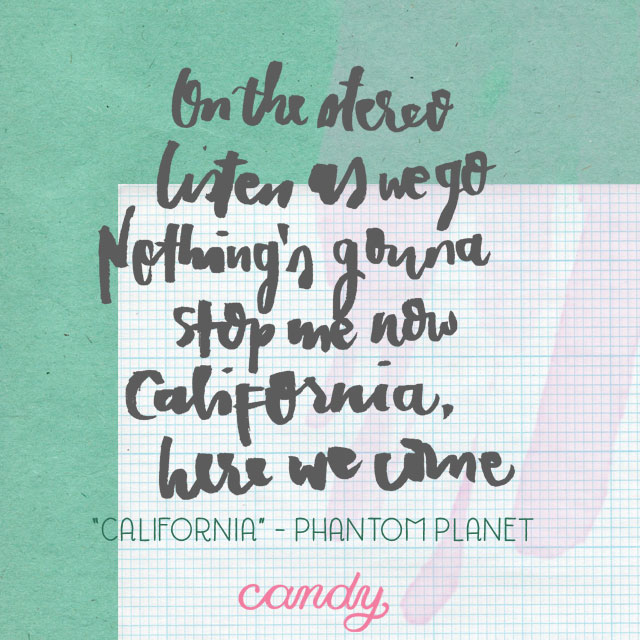 On the stereo
listen as we go
Nothing's gonna
stop me now
California,
here we come
"CALIFORNIA" - PHANTOM PLANET
candy